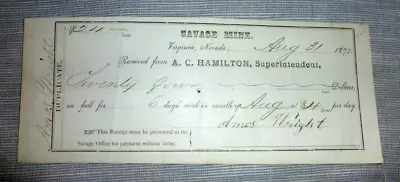 $24
SAVAGE MINE.
Virginia, Nevada, Aug 31 187
Received from A. C. HAMILTON, Superintendent,
Twenty four Dollars,
in full for 6 days' work in month of Aug at $4 per day
Amos Wright
This Receipt must be presented at the
Savage Office for payment without delay.
DUPLICATE.